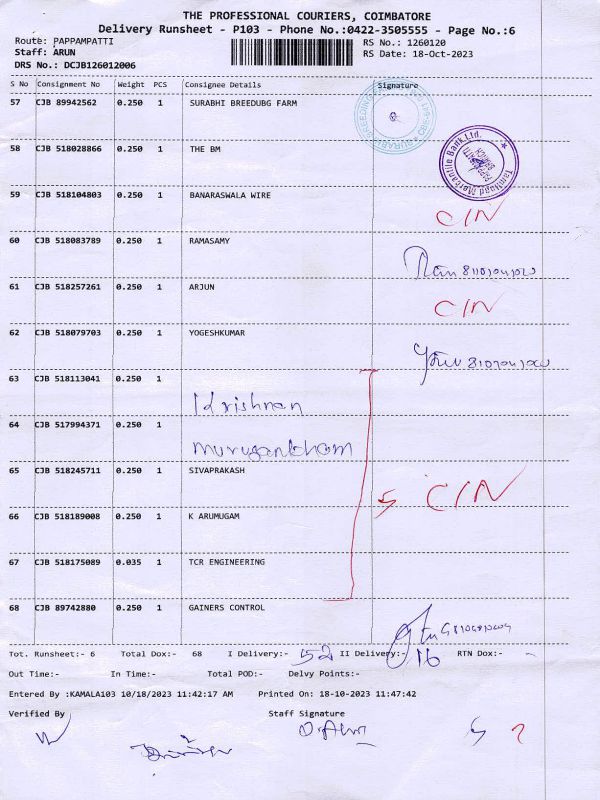 THE PROFESSIONAL COURIERS, COIMBATORE
Delivery Runsheet - P103 - Phone No.:0422-3505555 - Page No.:6
Route: PAPPAMPATTI
RS No.: 1260120
Staff: ARUN
RS Date: 18-Oct-2023
DRS No.: DCJB126012006
S No Consignment No Weight PCS Consignee Details Signature
57 CJB 89942562 0.250 1 SURABHI BREEDUBG FARM
58 CJB 518028866 0.250 1 THE BM
Tamilnad Mercantile Bank Ltd.
59 CJB 518104803 0.250 1 BANARASWALA WIRE
C/N
60 CJB 518083789 0.250 1 RAMASAMY
61 CJB 518257261 0.250 1 ARJUN
C/N
62 CJB 518079703 0.250 1 YOGESHKUMAR
63 CJB 518113041 0.250 1
krishnan
64 CJB 517994371 0.250 1
65 CJB 518245711 0.250 1 SIVAPRAKASH
5 C/N
66 CJB 518189008 0.250 1 K ARUMUGAM
67 CJB 518175089 0.035 1 TCR ENGINEERING
68 CJB 89742880 0.250 1 GAINERS CONTROL
Tot. Runsheet:- 6 Total Dox:- 68 I Delivery:- 52 II Delivery:- 16 RTN Dox:- -
Out Time:- In Time:- Total POD:- Delvy Points:-
Entered By :KAMALA103 10/18/2023 11:42:17 AM Printed On: 18-10-2023 11:47:42
Verified By Staff Signature